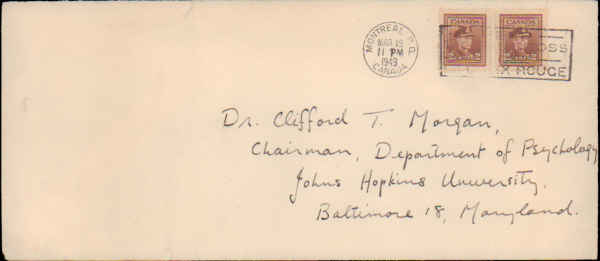 MONTREAL, P.Q.
MAR 15
11 PM
1949
CANADA
CANADA
CANADA
OSS
X ROUGE
Dr. Clifford T. Morgan,
Chairman, Department of Psychology
Johns Hopkins University.
Baltimore 18, Maryland.